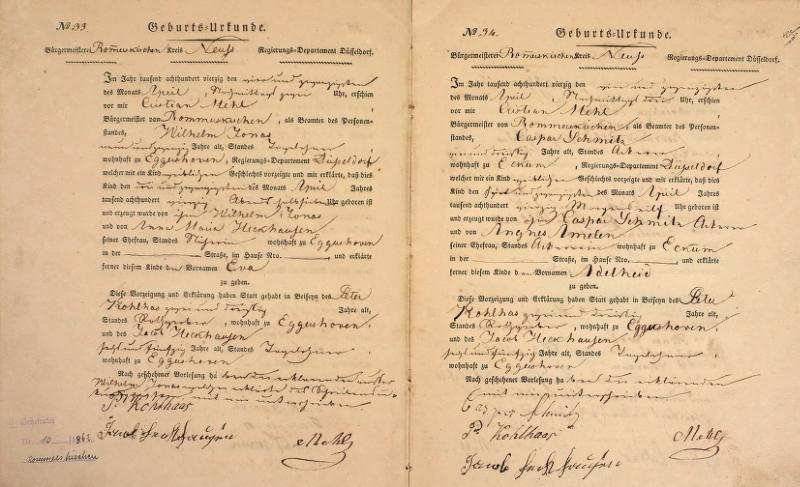 No 33.
Geburts-Urkunde.
Bürgermeisterei Rommerskirchen Kreis Neuss Regierungs-Departement Düsseldorf.
Im Jahr tausend achthundert vierzig den vier und zwanzigsten
des Monats April, Nachmittags Uhr, erschien
vor mir Cristian Mehl
Bürgermeister von Rommerskirchen, als Beamter des Personen-
standes, Wilhelm Jonas
neun und zwanzig Jahre alt, Standes Tagelöhner
wohnhaft zu Eggershoven, Regierungs-Departement Düsseldorf
welcher mir ein Kind weiblichen Geschlechts vorzeigte und mir erklärte, daß dies
Kind den drei und zwanzigsten des Monats April Jahres
tausend achthundert vierzig Abends Uhr geboren ist
und erzeugt wurde von ihm Wilhelm Jonas
und von Anna Maria Heckhausen
seiner Ehefrau, Standes wohnhaft zu Eggershoven
in der Straße, im Hause Nro. und erklärte
ferner diesem Kinde den Vornamen Eva
zu geben.
Diese Vorzeigung und Erklärung haben Statt gehabt in Beiseyn des Peter
Kohlhas und dreißig Jahre alt,
Standes , wohnhaft zu Eggershoven,
und des Jacob Heckhausen
sechs und fünfzig Jahre alt, Standes Tagelöhner
wohnhaft zu Eggershoven
Nach geschehener Vorlesung ha ben der erklärende
Wilhelm Jonas welcher erklärte des Schreibens
mit mir unterschrieben
P. Kohlhaas
Jacob Heckhausen
Mehl
10
Rommerskirchen
No 34.
Geburts-Urkunde.
Bürgermeisterei Rommerskirchen Kreis Neuss Regierungs-Departement Düsseldorf.
Im Jahr tausend achthundert vierzig den vier und zwanzigsten
des Monats April, Nachmittags drei Uhr, erschien
vor mir Cristian Mehl
Bürgermeister von Rommerskirchen, als Beamter des Personen-
standes, Caspar Schmitz
und dreißig Jahre alt, Standes Ackerer
wohnhaft zu Eckum, Regierungs-Departement Düsseldorf
welcher mir ein Kind weiblichen Geschlechts vorzeigte und mir erklärte, daß dies
Kind den und zwanzigsten des Monats April Jahres
tausend achthundert vierzig Morgens elf Uhr geboren ist
und erzeugt wurde von ihm Caspar Schmitz Ackerer
und von Angnes Amelen
seiner Ehefrau, Standes Ackererin wohnhaft zu Eckum
in der Straße, im Hause Nro. und erklärte
ferner diesem Kinde den Vornamen Adelheid
zu geben.
Diese Vorzeigung und Erklärung haben Statt gehabt in Beiseyn des Peter
Kohlhas und dreißig Jahre alt,
Standes , wohnhaft zu Eggershoven,
und des Jacob Heckhausen
sechs und fünfzig Jahre alt, Standes Tagelöhner
wohnhaft zu Eggershoven
Nach geschehener Vorlesung ha ben der erklärende
mit mir unterschrieben
Casper Schmitz
P. Kohlhaas
Mehl
Jacob Heckhausen